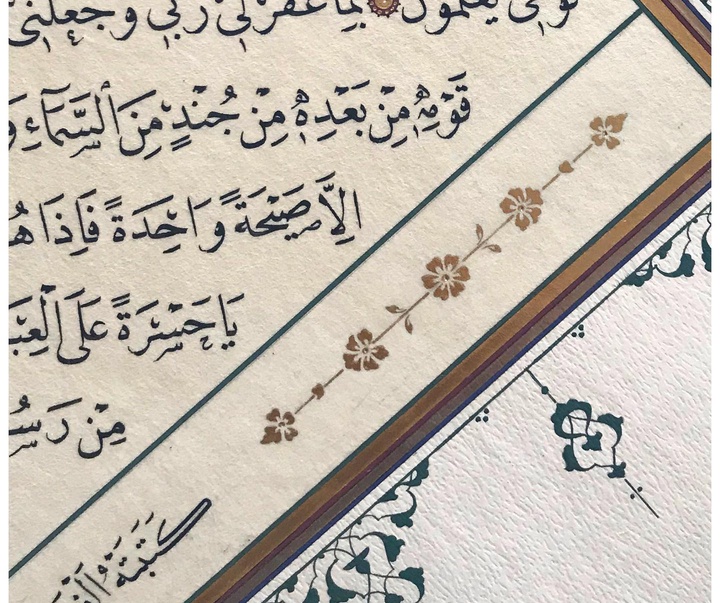 قَوْمِى يَعْلَمُونَ بِمَا غَفَرَ لِى رَبِّى وَجَعَلَنِى
قَوْمِهٖ مِنْ بَعْدِهٖ مِنْ جُنْدٍ مِنَ السَّمَآءِ وَ
اِلَّا صَيْحَةً وَاحِدَةً فَاِذَا هُ
يَا حَسْرَةً عَلَى الْعِبَ
مِنْ رَسُ
كَتَبَتْهُ